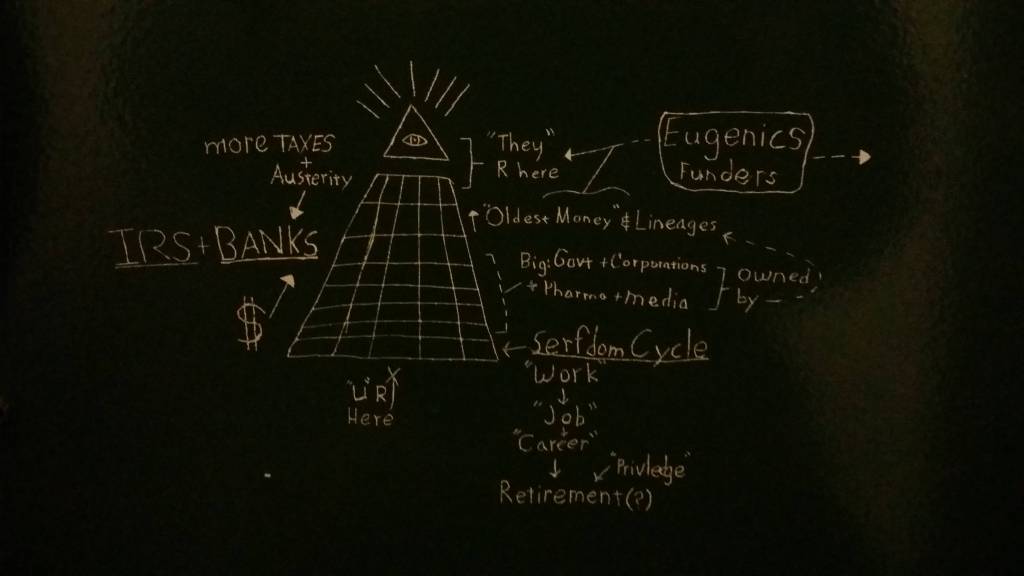 more TAXES
+
Austerity
IRS + BANKS
$
"They"
R here
Eugenics
Funders
"Oldest Money" & Lineages
Big: Govt + Corporations
+ Pharma + media
owned
by
Serfdom Cycle
"Work"
"Job"
"Career"
"Privledge"
Retirement(?)
X
"U" R
Here